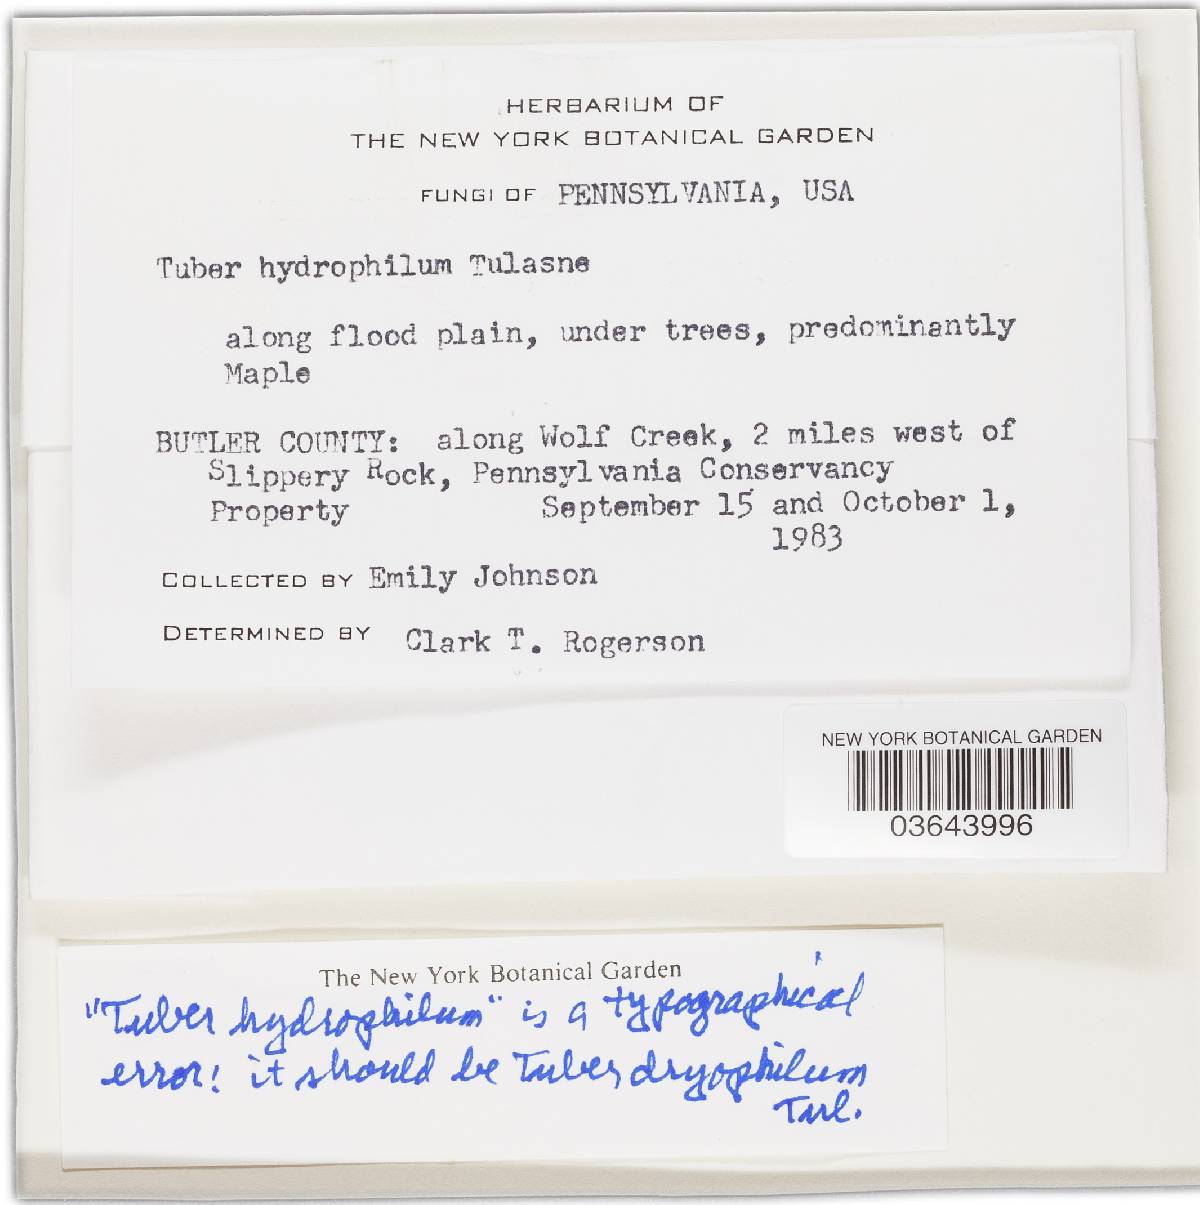 HERBARIUM OF
THE NEW YORK BOTANICAL GARDEN
FUNGI OF PENNSYLVANIA, USA
Tuber hydrophilum Tulasne
along flood plain, under trees, predominantly
Maple
BUTLER COUNTY: along Wolf Creek, 2 miles west of
Slippery Rock, Pennsylvania Conservancy
Property September 15 and October 1,
1983
COLLECTED BY Emily Johnson
DETERMINED BY Clark T. Rogerson
NEW YORK BOTANICAL GARDEN
03643996
The New York Botanical Garden
"Tuber hydrophilum" is a typographical
error! it should be Tuber dryophilum
Tul.